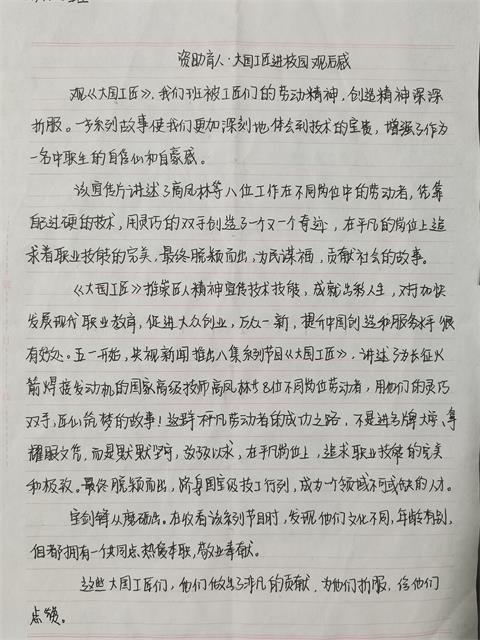 资助育人·大国工匠进校园观后感
观《大国工匠》，我们班被工匠们的劳动精神，创造精神深深
折服。一系列故事使我们更加深刻地体会到技术的宝贵，增强了作为
一名中职生的自信心和自豪感。
该宣传片讲述了高凤林等八位工作在不同岗位中的劳动者，凭靠
自己过硬的技术，用灵巧的双手创造了一个又一个奇迹，在平凡的岗位上追
求着职业技能的完美，最终脱颖而出，为民谋福，贡献社会的故事。
《大国工匠》推崇匠人精神宣传技术技能，成就出彩人生，对加快
发展现代职业教育，促进大众创业，万众一新，提升中国创造和服务水平很
有好处。五一开始，央视新闻推出八集系列节目《大国工匠》，讲述了为长征火
箭焊接发动机的国家高级技师高凤林等8位不同岗位劳动者，用他们的灵巧
双手，匠心筑梦的故事！这群不平凡劳动者的成功之路，不是进名牌大学、拿
耀眼文凭，而是默默坚守，孜孜以求，在平凡岗位上，追求职业技能的完美
和极致。最终脱颖而出，跻身国宝级技工行列，成为一个领域不可或缺的人才。
宝剑锋从磨砺出。在收看该系列节目时，发现他们文化不同，年龄有别，
但都拥有一个共同点热爱本职，敬业奉献。
这些大国工匠们，他们做出了非凡的贡献，为他们折服，给他们
点赞。